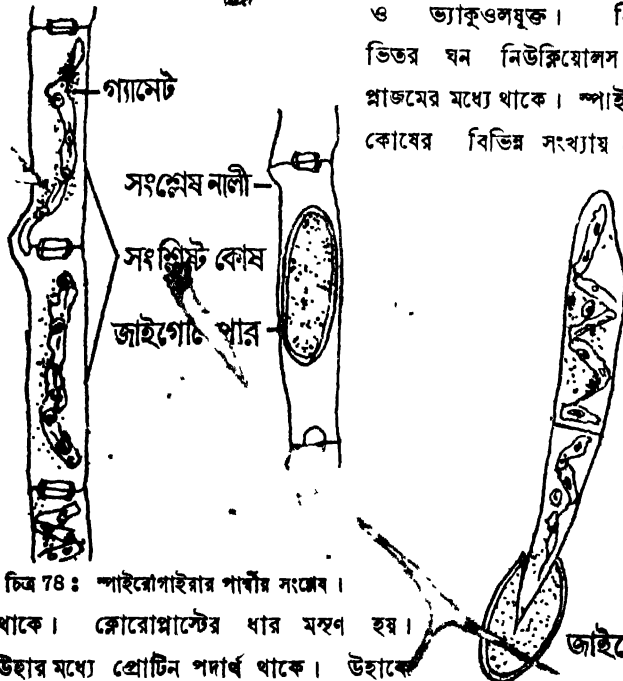 ও ভ্যাকুওলযুক্ত।
ভিতর ঘন নিউক্লিয়োলস
প্লাজমের মধ্যে থাকে।
কোষের বিভিন্ন সংখ্যায়
গ্যামেট
সংশ্লেষ নালী
সংশ্লিষ্ট কোষ
চিত্র 78 : স্পাইরোগাইরার পার্শ্বীয় সংশ্লেষ।
থাকে। ক্লোরোপ্লাস্টের ধার মসৃণ হয়।
উহার মধ্যে প্রোটিন পদার্থ থাকে। উহাকে